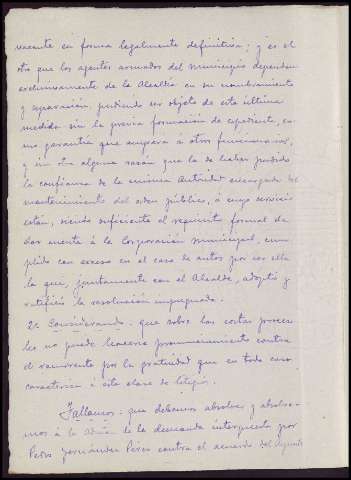 vacante en forma legalmente definitiva; y es el
otro que los agentes armados del Municipio dependen
exclusivamente de la Alcaldía en su nombramiento
y separación, pudiendo ser objeto de esta última
medida sin la previa formación de expediente, co-
mo garantía que ampara a otros funcionarios,
y sin otra alguna razón que la de haber perdido
la confianza de la misma Autoridad encargada del
mantenimiento del orden público, á cuyo servicio
están, siendo suficiente el requisito formal de
dar cuenta á la Corporación Municipal, cum-
plido con exceso en el caso de autos por ser ella
la que, juntamente con el Alcalde, adoptó y
ratificó la resolución impugnada.
2º Considerando- que sobre las costas procesa-
les no puede hacerse pronunciamiento contra
el recurrente por la gratuidad que en todo caso
caracteriza á esta clase de litigios.
Fallamos- que debemos absolver y absolve-
mos á la de la demanda interpuesta por
Pedro Fernández Pérez contra el acuerdo del